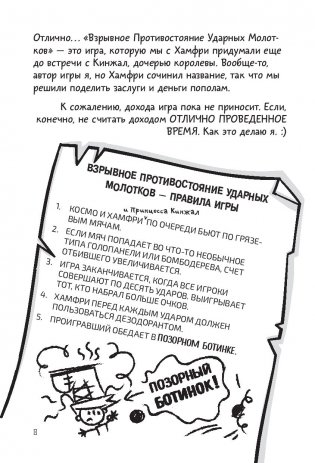 Отлично... «Взрывное Противостояние Ударных Молот-
ков» — это игра, которую мы с Хамфри придумали еще
до встречи с Кинжал, дочерью королевы. Вообще-то,
автор игры я, но Хамфри сочинил название, так что мы
решили поделить заслуги и деньги пополам.
К сожалению, дохода игра пока не приносит. Если,
конечно, не считать доходом ОТЛИЧНО ПРОВЕДЕННОЕ
ВРЕМЯ. Как это делаю я. :)
ВЗРЫВНОЕ ПРОТИВОСТОЯНИЕ УДАРНЫХ
МОЛОТКОВ — ПРАВИЛА ИГРЫ
и Принцесса Кинжал
1. КОСМО И ХАМФРИ ПО ОЧЕРЕДИ БЬЮТ ПО ГРЯЗЕ-
ВЫМ МЯЧАМ.
2. ЕСЛИ МЯЧ ПОПАДАЕТ ВО ЧТО-ТО НЕОБЫЧНОЕ
ТИПА ГОЛОПАНЕЛИ ИЛИ БОМБОДЕРЕВА, СЧЕТ
ОТБИВШЕГО УВЕЛИЧИВАЕТСЯ.
3. ИГРА ЗАКАНЧИВАЕТСЯ, КОГДА ВСЕ ИГРОКИ
СОВЕРШАЮТ ПО ДЕСЯТЬ УДАРОВ. ВЫИГРЫВАЕТ
ТОТ, КТО НАБРАЛ БОЛЬШЕ ОЧКОВ.
4. ХАМФРИ ПЕРЕД КАЖДЫМ УДАРОМ ДОЛЖЕН
ПОЛЬЗОВАТЬСЯ ДЕЗОДОРАНТОМ.
5. ПРОИГРАВШИЙ ОБЕДАЕТ В ПОЗОРНОМ БОТИНКЕ.
ПОЗОРНЫЙ
БОТИНОК!